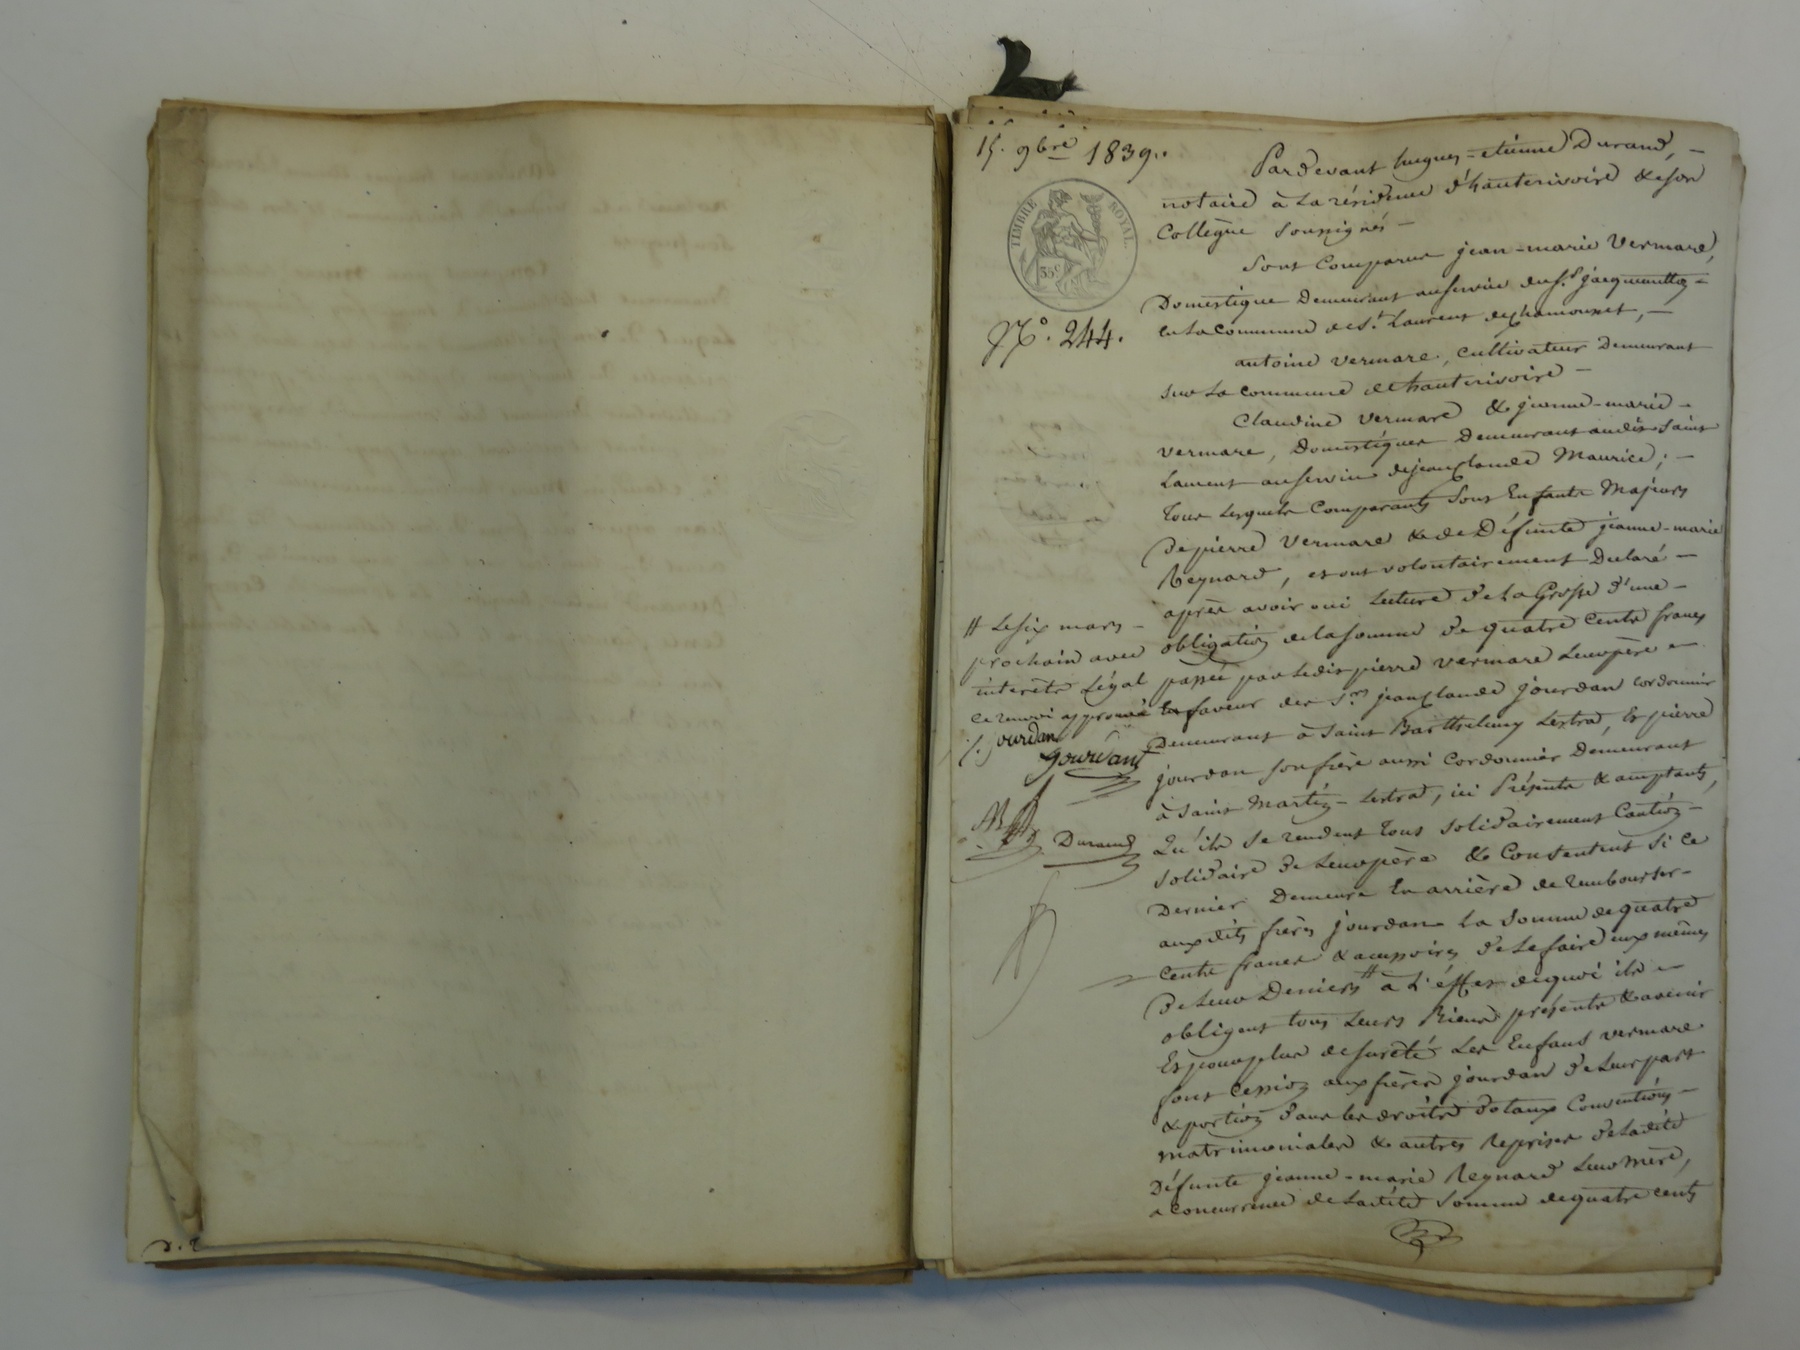 15. 9bre 1839..
TIMBRE ROYAL.
35c
N°. 244.
Pardevant hugues-etienne Durand, -
notaire à la résidence d'hauterivoire & son
Collègue soussignés -
Sont Comparus jean-marie Vermare,
Domestique demeurant au service du Sr.
en la commune de St. Laurent de chamousset, -
antoine vermare, cultivateur demeurant
sur la commune de hauterivoire -
Claudine vermare & jeanne-marie -
vermare, Domestiques demeurant audit saint
Laurent au service de jean Claude Maurice; -
tous lesquels Comparants sont Enfants Majeurs
de pierre Vermare & de Défunte jeanne-marie
Reynard, et ont volontairement declaré -
après avoir oui lecture de la Grosse d'une -
obligation de la somme de quatre cents francs
passée par ledit pierre vermare leur père -
En faveur des Srs. jean Claude jourdan cordonnier
Demeurant à saint Barthelemy Lestra, Et pierre
jourdan son frère aussi Cordonnier demeurant
à saint Martin-Lestra, ici présents & acceptants,
qu'ils se rendent tous solidairement Caution -
solidaire de leur père & Consentent si ce
dernier demeure En arrière de rembourser -
aux dits frères jourdan la somme de quatre
cents francs & accessoires de le faire eux mêmes
de leur deniers # à l'éffet de quoi ils -
obligent tous leurs Biens présents & avenir
Et pour plus de sureté les Enfans vermare
font Cession aux frères jourdan de leur part
& portion dans les droits dotaux Conventions -
matrimoniales & autres reprises de ladite
défunte jeanne-marie Reynard leur mère,
a concurrence de ladite somme de quatre cents
# le six mars -
prochain avec
interêts légal
ce renvoi approuvé
p. jourdan
jourdant
Durand